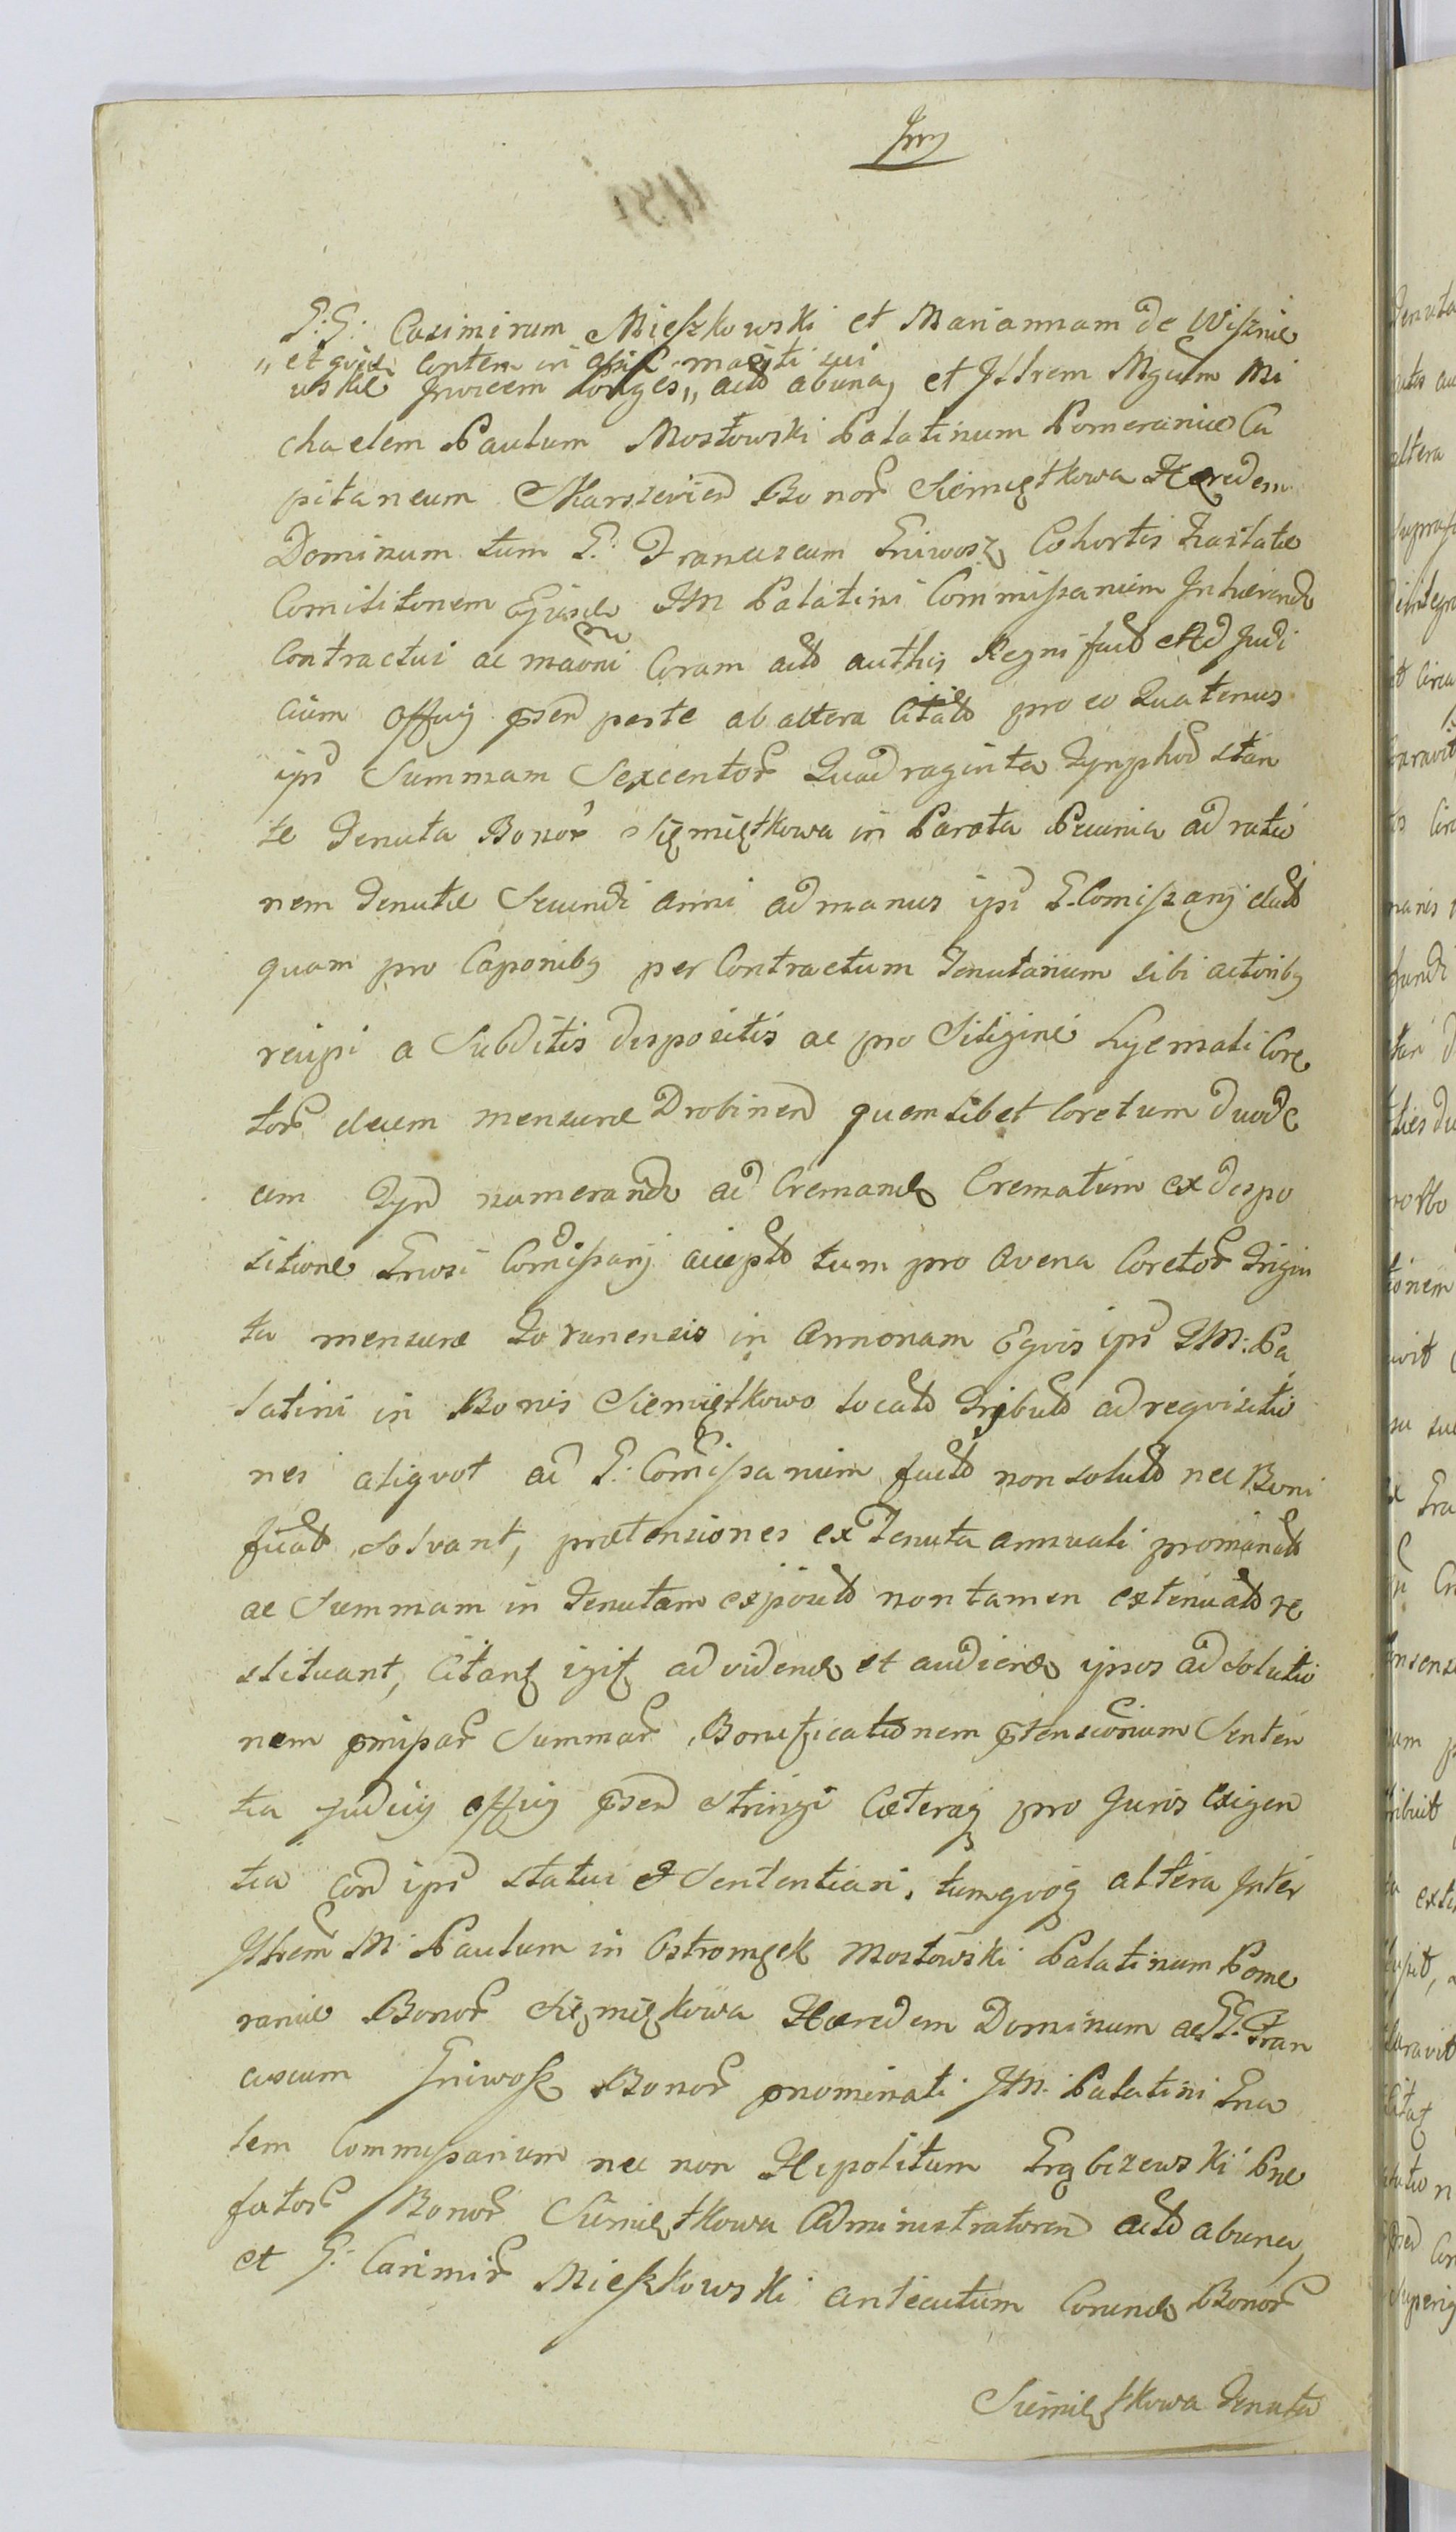 G: G: Casimirum Mieszkowski et Mariannam de Wisznie
„ et quid. conten in assis. mariti sui
wskie Invicem conges „ act abuna, et Illrem Mgcum Mi
chaelem Paulum Mostowski Palatinum Pomeraniae Ca
pitaneum Bonor Siemiętkowa Hæredem
Dominum tum G: Franciscum Gniwosz Cohortis Hastatæ
Comilitonem Ejusde IM Palatini Commissarium Inhærendo
Contractui ac coram act authis Regni fact Ad Judi
cium Offcij psen parte ab altera Citatt pro eo Quatenus
ips Summam Sexcentor Quadraginta Tynphor stan
te Tenuta Bonor Siemiętkowa in Parata Pecunia ad ratio
nem Tenutæ Secundi anni ad manus ipsi G. Comissarij datt
quam pro Caponibq per Contractum Tenutarium sibi actoribq
recipi a Subditis dispositis ac pro Siligine Hyemali Core
tor decem mensuræ Drobinen quemlibet Coretum duode
cim Tyn numerando ad Cremand Crematum ex dispo
sitione Gnosi Comissarij accept tum pro Avena Coretor Trigin
ta mensuræ Torunensis in Annonam Equis ips IM: Pa
latini in Bonis Siemiętkowo locatt Tributt ad requisitio
nes aliquot ad G: Comissarium factt non solutt nec Boni
ficatt solvant, prætensiones ex Tenuta annuali promanatt
ac Summam in Tenutam exposit non tamen extenuatt re
stituant, Citant igit ad videnđ et audienđ ipsos ad Solutio
nem pncipar Summar, Bonificationem ptensionum Senten
tia Judicij offcij psen stringi Cæteraq pro Juris exigen
tia con ips statui et Sententiari, tumquoq altera Inter
Illrem M: Paulum in Ostromęck Mostowski Palatinum Pome
raniæ Bonor Siemiękowa Hæredem Dominum ac G. G. Fran
ciscum Gniwosz Bonor pnominati IM. Palatini Gna
lem Commissarium nec non Hipolitum Grąbczewski Præ
fator Bonor Siemiętkowa Administratoren act abuna,
et G: Casimir Mieszkowski anteactum Corund Bonor
Siemiętkowa Tenuta